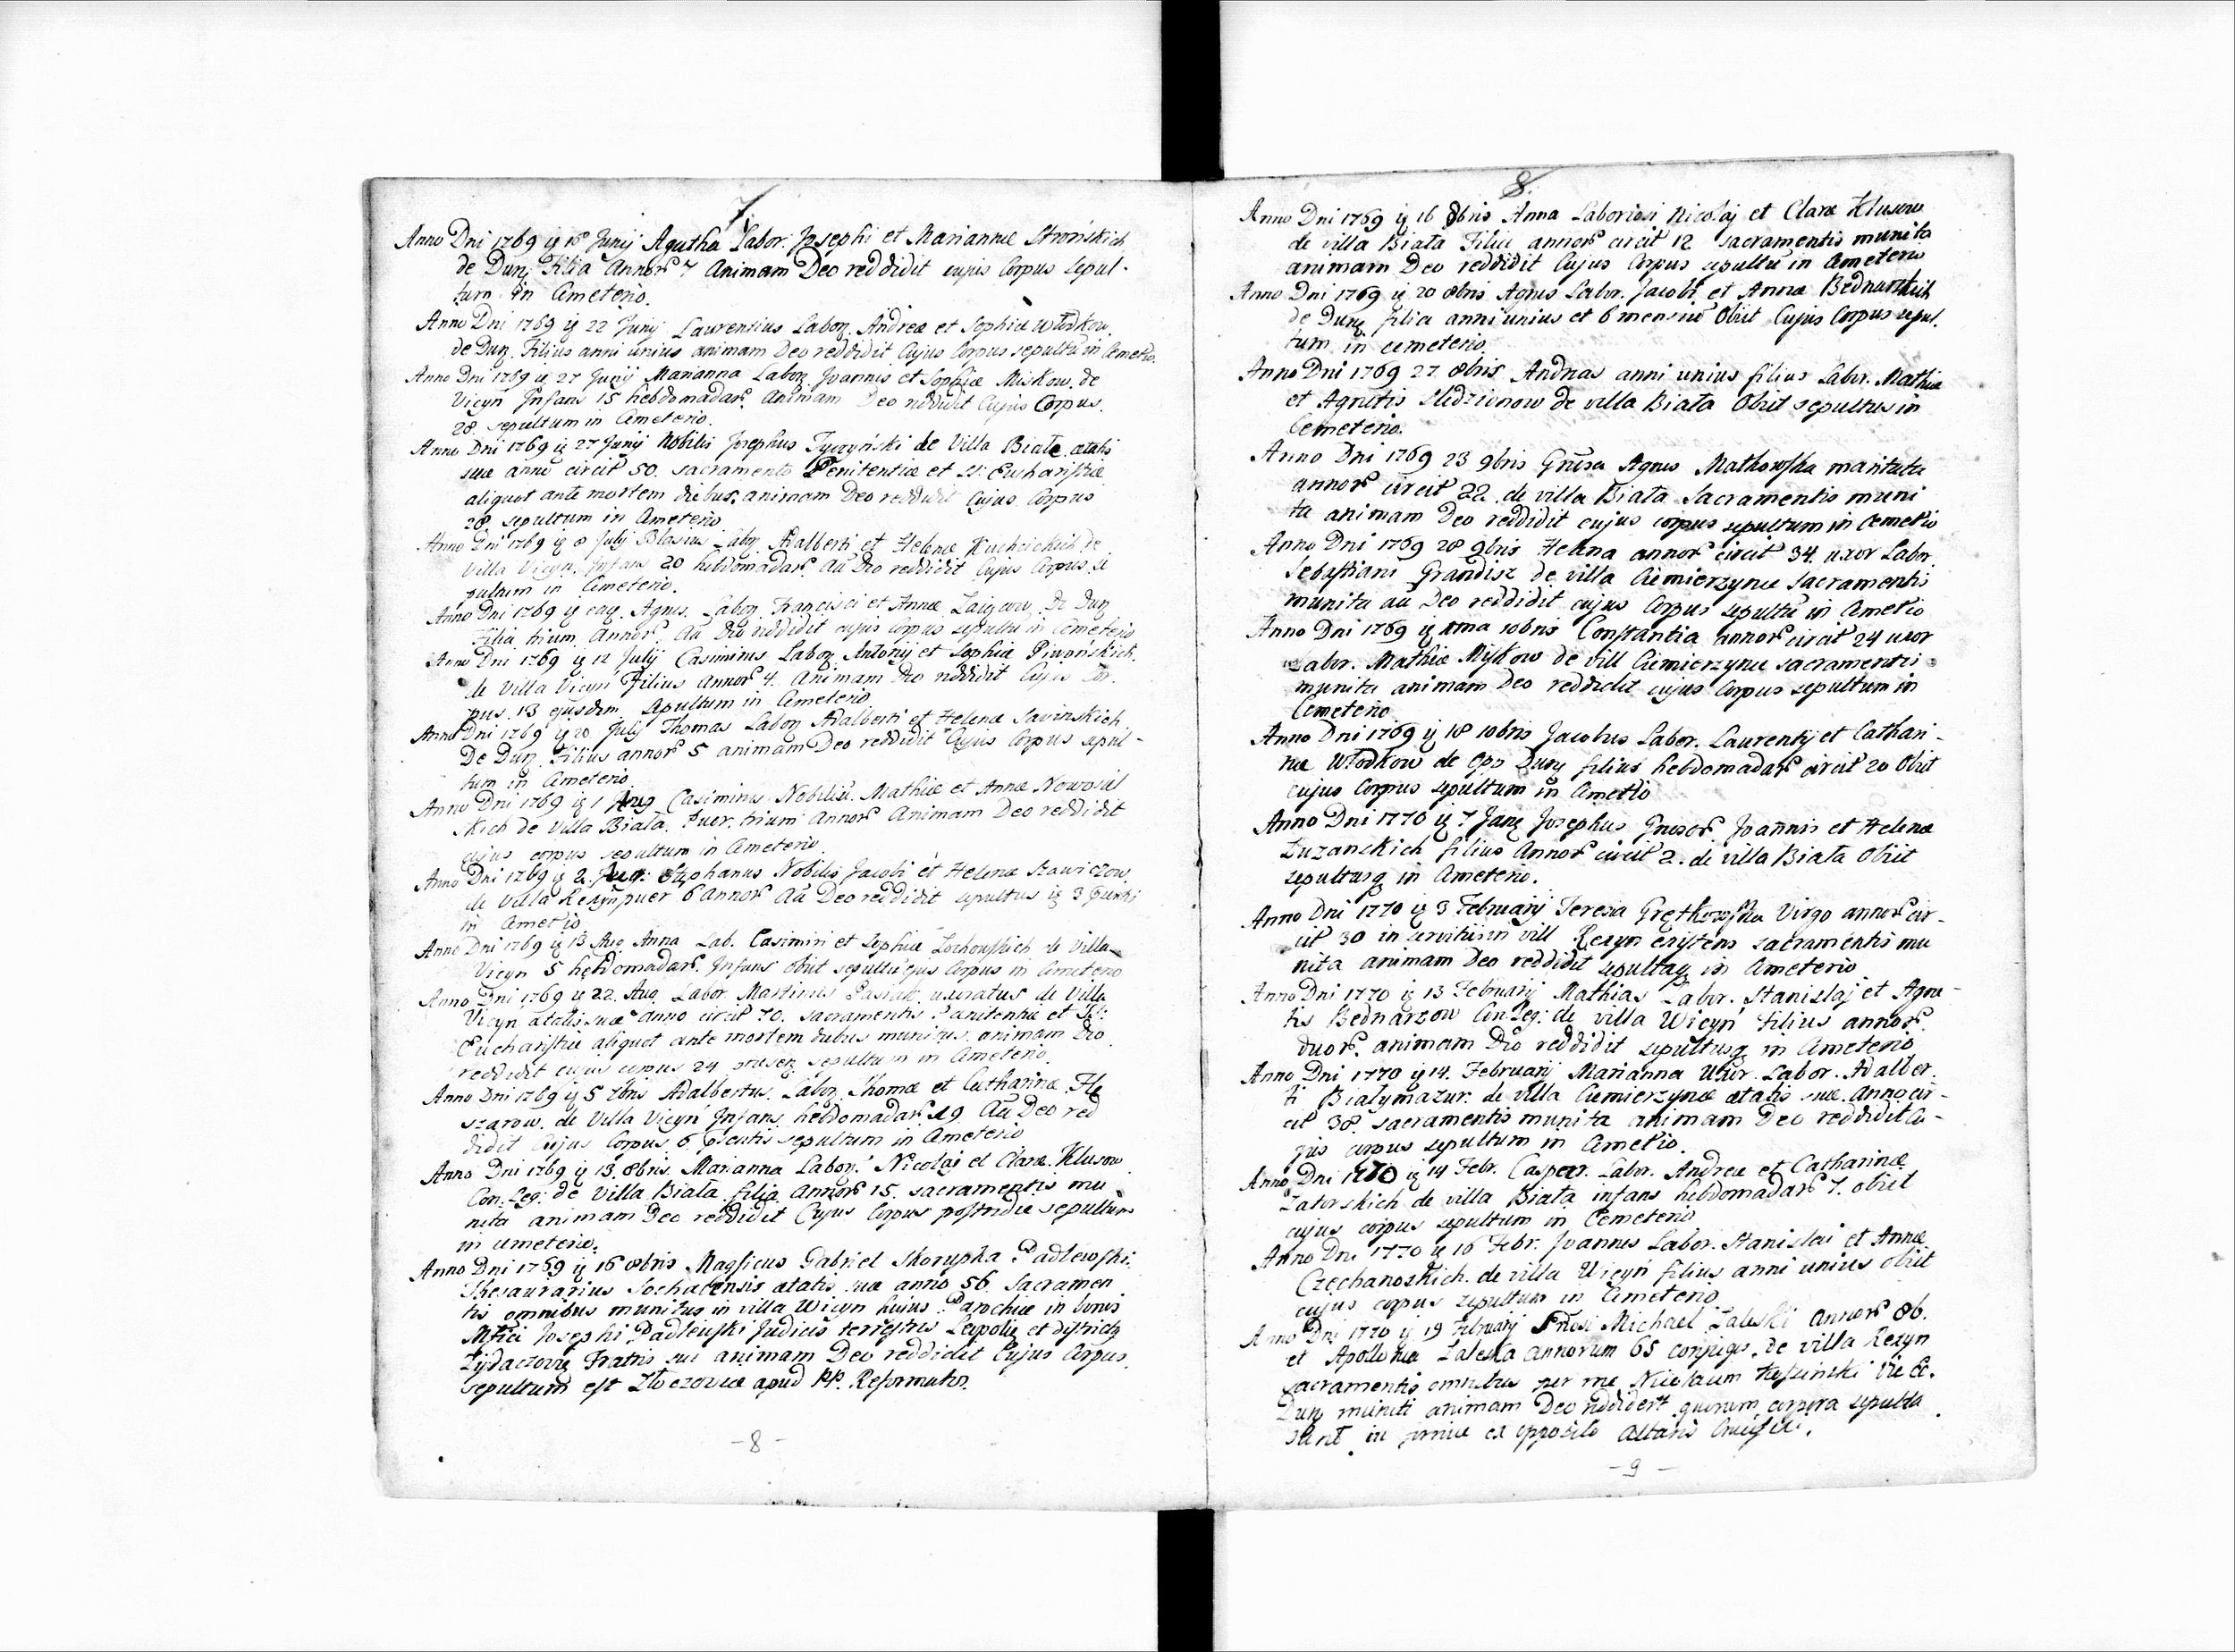 7
Anno Dni 1769 ią 18 Junij Agatha Labor: Josephi et Mariannæ Strońskich
de Dunj Filia Annor 7 Animam Deo reddidit cujus Corpus sepul-
tum in Cmeterio.
Anno Dni 1769 ią 22 Junij Laurentius Labor. Andreæ et Sophiæ Włodkow.
de Dunj. Filius anni unius animam Deo reddidit Cujus Corpus sepultū in Cemet̄io.
Anno Dni 1769 ią 27 Junij Marianna Labor. Joannis et Sophiæ Miskow. de
Vicyń Infans 15 hebdomadar. Animam Deo reddidit Cujus Corpus.
28. sepultum in Cmeterio.
Anno Dni 1769 ią 27 Junij Nobilis Josephus Tyczyński de Villa Biale ætatis
suæ anno circit 50. sacramento Penitentiæ et SS: Eucharistiæ
aliquot ante mortem diebus. animam Deo reddidit Cujus Corpus
28. sepultum in Cmeterio
Anno Dni 1769 ią 8 Julij Blasius Labor. Adalberti et Helenæ Kuchcickich de
Villa Vicyn. Infans 20 hebdomadar. Aū Deo reddidit Cujus Corpus se
pultum in Cmeterio.
Anno Dni 1769 ią eaq. Agnes. Labor. Francisci et Annæ De Dunj
Filia trium Annor. Aū Deo reddidit cujus Corpus sepultū in Cmeterio
Anno Dni 1769 ią 12 Julij Casimirus Labor. Antonij et Sophiæ Piwońskich.
de Villa Vicyń Filius annor 4. Animam Deo reddidit Cujus Cor.
pus. 13 ejusdem sepultum in Cmeterio
Anno Dni 1769 ią 20 Julij Thomas Labor. Adalberti et Helenæ Savinskich
De Dunj. Filius annor 5 animam Deo reddidit Cujus Corpus sepul-
tum in Cmeterio
Anno Dni 1769 ią 1 Aug Casimirus Nobiliū. Mathiæ et Annæ Nowosiel
skich de Villa Biała. Puer. trium Annor Animam Deo reddidit
cujus corpus sepultum in Cmeterio.
Anno Dni 1769 ią 2. Aug: Stephanus Nobilis Jacobi et Helenæ
de Villa Rezyn puer 6 annor Aū Deo reddidit sepultus ią 3
in Cmet̄io
Anno Dni 1769 ią 13 Aug Anna Lab. Casimiri et Sophiæ Zochowskich de Villa
Vicyn 5 hebdomadar. Infans obiit sepultū ejus Corpus in Cmeterio
Anno Dni 1769 ią 22. Aug Labor. Martinus Pasiak. uxoratus de Villa
Vicyń ætatis suæ anno circit 70. sacramentis Pænitentiæ et SS:
Eucharistiæ aliquot ante mortem diebus munitus. animam Deo
reddidit cujus corpus 24 sepultum in Cmeterio
Anno Dni 1769 ią 5 7bris Adalbertus. Labor. Thomæ et Catharinæ He
szarow. de Villa Vicyń Infans hebdomadar. 19 Aū Deo red
didit Cujus Corpus 6 sepultum in Cmeterio
Anno Dni 1769 ią 13. 8bris. Marianna Labor. Nicolai et Claræ. Klusow
Con. Leg: de Villa Biała filia Annor 15. sacramentis mu
nita animam Deo reddidit Cujus Corpus postridie sepultum
in cmeterio.
Anno Dni 1769 ią 16 8bris Magficus Gabriel Skorupka Padlewski.
Thesaurarius Sochacensis ætatis suæ anno 56. Sacramen
tis omnibus munitus in villa Wicyn hujus Parochiæ in bonis
Mfici Josephi Padlewski Judicis terrestris Leopolię et districtę
Zydaczowię Fratris sui animam Deo reddidit Cujus Corpus.
sepultum est Złoczoviæ apud PP. Reformator.
-8-
8.
Anno Dni 1769 ią 16 8bris Anna Laboriosi Nicolaj et Claræ Klusow
de villa Biała Filia annor circit 12 sacramentis munita
animam Deo reddidit Cujus Corpus sepultū in Cmeterio
Anno Dni 1769 ią 20 8bris Agnes Labor. Jacobi et Annæ Bednarskich
de Dunj filia anni unius et 6 mensiū Obiit Cujus Corpus sepul.
tum in cemeterio
Anno Dni 1769 27 8bris Andreas anni unius filius Labor. Mathiæ
et Agnetis Sledziunow de villa Biała Obiit sepultus in
Cemeterio.
Anno Dni 1769 23 9bris Gn̄esa Agnes Małkowska maritata
annor circit 22. de villa Biała Sacramentis muni
ta animam Deo reddidit cujus corpus sepultum in Cemet̄io
Anno Dni 1769 28 9bris Helena annor circit 34. uxor Labor.
Sebastiani Grandisz de villa Ciemierzynce Sacramentis
munita aū Deo reddidit cujus Corpus sepultū in Cmet̄io
Anno Dni 1769 ią 1ma 10bris Constantia annor circit 24 uxor
Labor. Mathiæ Miskow de vill Ciemierzynce sacramentis
munita animam Deo reddidit cujus Corpus sepultum in
Cemeterio
Anno Dni 1769 ią 18 10bris Jacobus Labor. Laurentij et Cathari-
næ Włodkow de Opp Dunj filius hebdomadar circit 20 Obiit
cujus Corpus sepultum in Cmet̄io
Anno Dni 1770 ią 7 Janę Josephus Gnosor Joannis et Helenæ
Łuzanskich filius Annor circit 2. de villa Biała Obiit
sepultusą in Cmeterio.
Anno Dni 1770 ią 3 Februarij Teresia Grętkowska Virgo annor cir-
cit 30 in servitiis in vill Rezyn existens sacramentis mu
nita animam Deo reddidit sepultaą in Cmeterio
Anno Dni 1770 ią 13 Februarij Mathias Labor. Stanislaj et Agne-
tis Bednarzow Con Leg: de villa Wicyń Filius annor.
duor. animam Deo reddidit sepultusą in Cmeterio
Anno Dni 1770 ią 14. Februarij Marianna Uxor. Labor. Adalber.
ti Bialymazur: de villa Ciemierzynce ætatis suæ. Anno cir-
cit 38. sacramentis munita animam Deo reddidit Cu-
jus corpus sepultum in Cmet̄io.
Anno Dni 1770 ią 14 Febr. Casper. Labor. Andreæ et Catharinæ
Zatorskich de villa Biała infans hebdomadar 7. obiit
cujus corpus sepultum in Cemeterio
Anno Dni 1770 ią 16 Febr. Joannes Labor. Stanislai et Annæ
Czechanoskich. de villa Wicyń filius anni unius obiit
cujus corpus sepultum in Cmeterio
Anno Dni 1770 ią 19 Februarij Gn̄osi Michael Zaleski Annor 86.
et Apollonia Zaleska annorum 65 conjuges. de villa Rezyn
sacramentis omnibus per me Nicolaum
Dunj muniti animam Deo reddider̄t quorum corpora sepulta
sunt in ex opposito Altaris
-9-